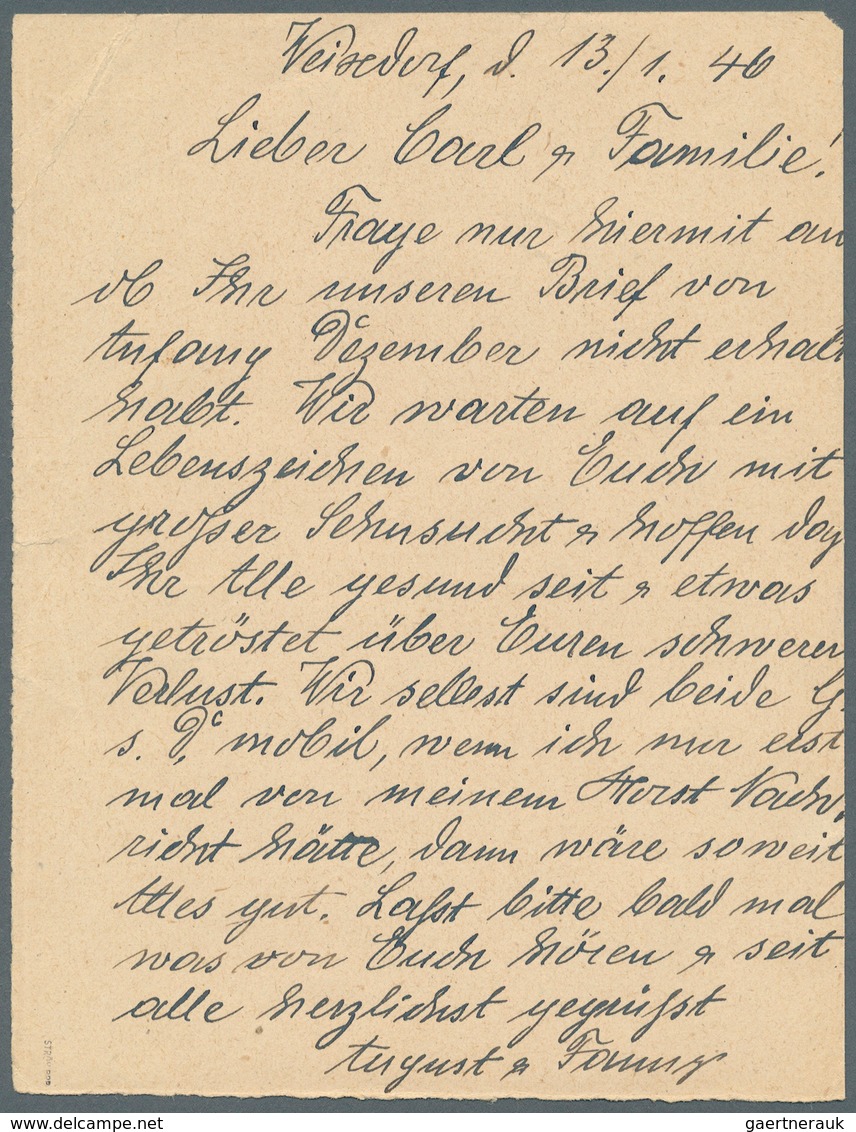 Weisdorf, d. 13./1. 46
Lieber Carl & Familie!
Frage nur hiermit an
ob Ihr unseren Brief von
Anfang Dezember nicht erhalt
habt. Wir warten auf ein
Lebenszeichen von Euch mit
großer Sehnsucht & hoffen daß
Ihr Alle gesund seit & etwas
getröstet über Euren schweren
Verlust. Wir selbst sind beide G.
s. D. mobil, wenn ich nur erst
mal von meinem Horst Nach-
richt hätte, dann wäre soweit
Alles gut. Laßt bitte bald mal
was von Euch hören & seit
alle herzlichst gegrüßt
August & Fanny
gaertnerauk